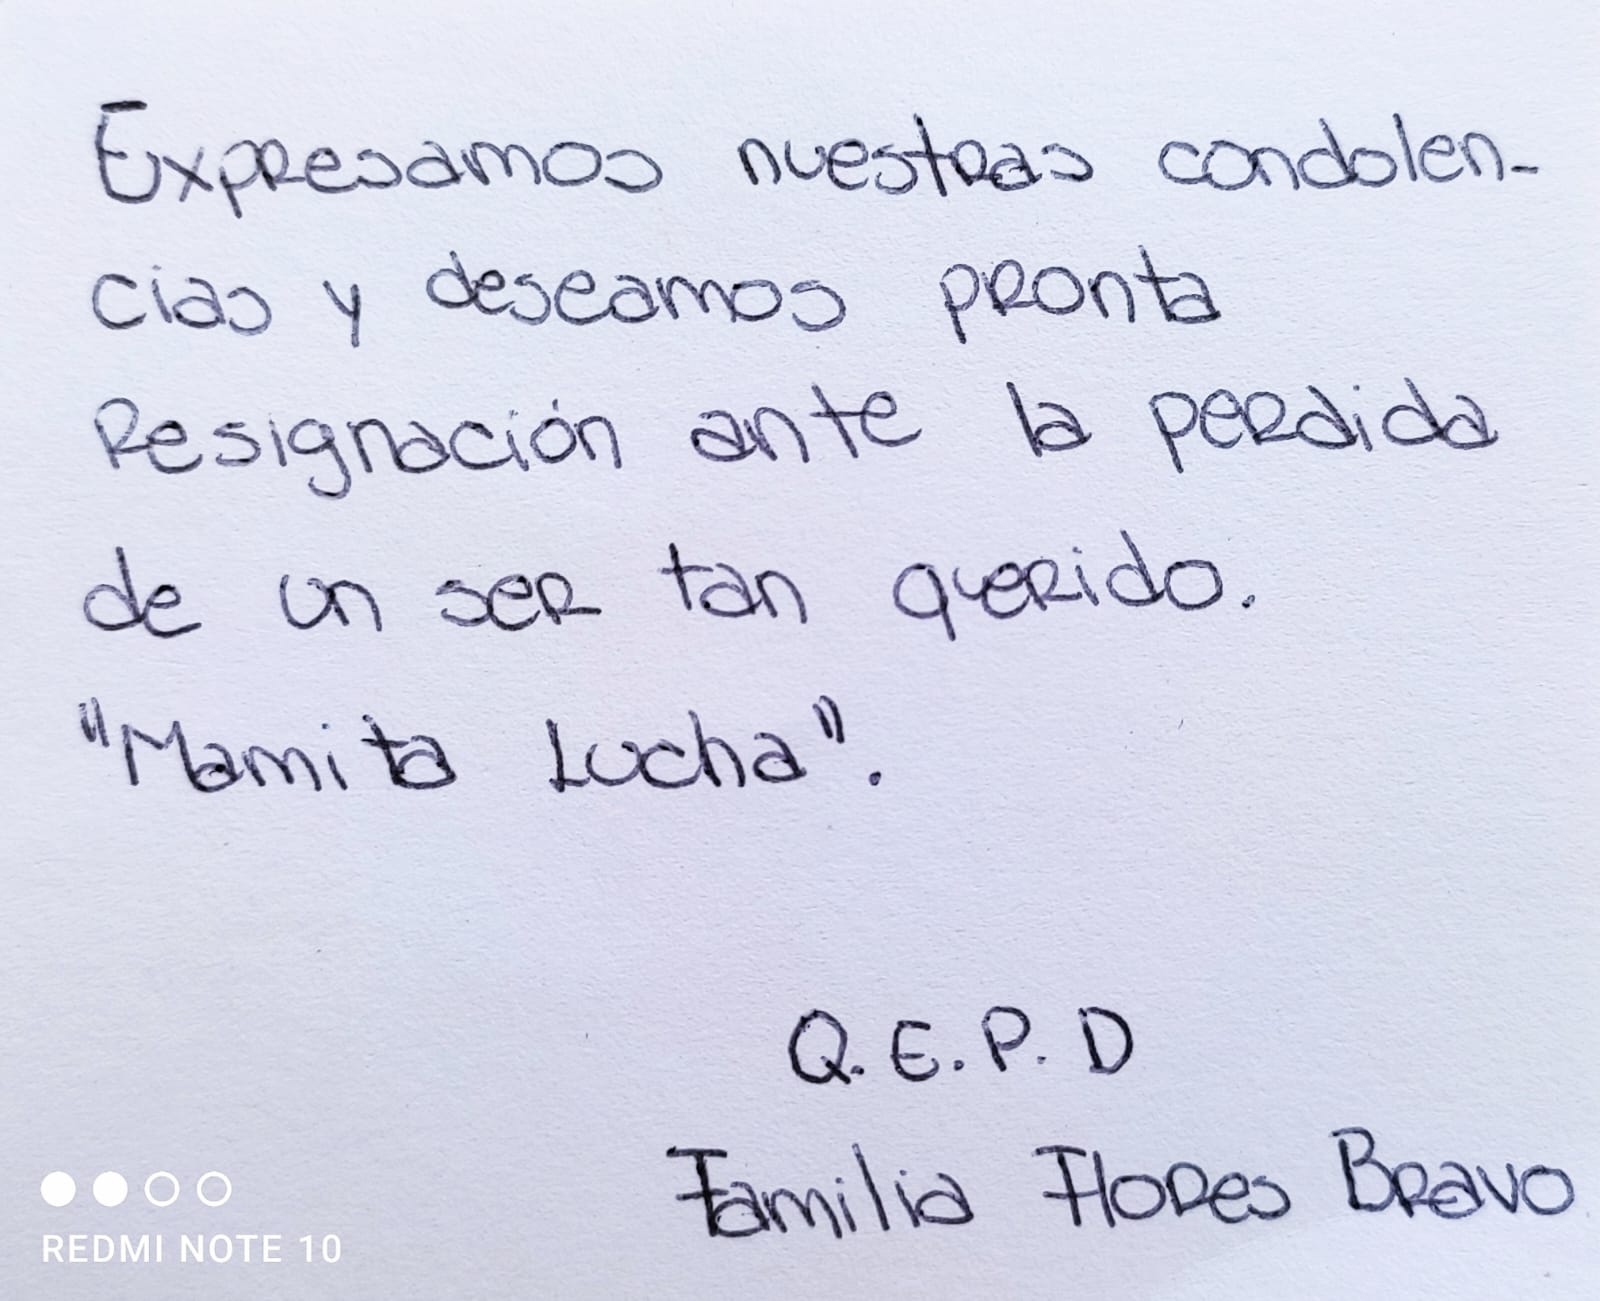 Expresamos nuestras condolen-
cias y deseamos pronta
Resignación ante la perdida
de un ser tan querido.
"Mamita Lucha".
Q.E.P.D
Familia Flores Bravo
REDMI NOTE 10